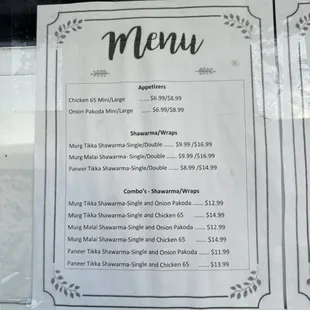 Menu
Appetizers
Chicken 65 Mini/Large ...... $6.99/$8.99
Onion Pakoda Mini/Large ...... $6.99/$8.99
Shawarma/Wraps
Murg Tikka Shawarma-Single/Double ...... $9.99 /$16.99
Murg Malai Shawarma-Single/Double ...... $9.99 /$16.99
Paneer Tikka Shawarma-Single/Double ...... $8.99 /$14.99
Combo's - Shawarma/Wraps
Murg Tikka Shawarma-Single and Onion Pakoda ...... $12.99
Murg Tikka Shawarma-Single and Chicken 65 ...... $14.99
Murg Malai Shawarma-Single and Onion Pakoda ...... $12.99
Murg Malai Shawarma-Single and Chicken 65 ...... $14.99
Paneer Tikka Shawarma-Single and Onion Pakoda ...... $11.99
Paneer Tikka Shawarma-Single and Chicken 65 ...... $13.99